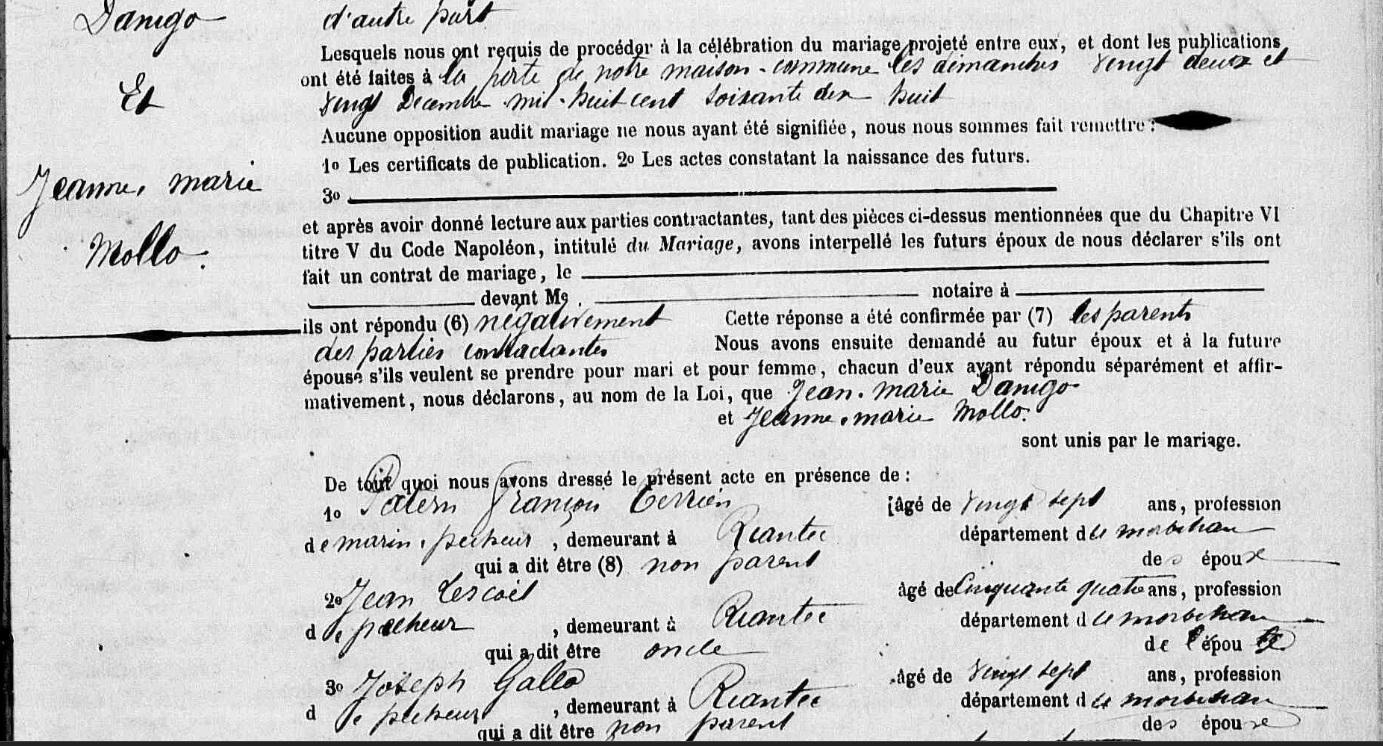 Danigo
Et
Jeanne, marie
Mollo.
d'autre part
Lesquels nous ont requis de procéder à la célébration du mariage projeté entre eux, et dont les publications
ont été faites à la porte de notre maison-commune les dimanches vingt deux et
vingt Decembre mil-huit cent soixante dix huit
Aucune opposition audit mariage ne nous ayant été signifiée, nous nous sommes fait remettre :
1o Les certificats de publication. 2o Les actes constatant la naissance des futurs.
3o
et après avoir donné lecture aux parties contractantes, tant des pièces ci-dessus mentionnées que du Chapitre VI
titre V du Code Napoléon, intitulé du Mariage, avons interpellé les futurs époux de nous déclarer s'ils ont
fait un contrat de mariage, le
devant Me . notaire à
ils ont répondu (6) négativement Cette réponse a été confirmée par (7) les parents
des parties contractantes Nous avons ensuite demandé au futur époux et à la future
épouse s'ils veulent se prendre pour mari et pour femme, chacun d'eux ayant répondu séparément et affir-
mativement, nous déclarons, au nom de la Loi, que Jean-marie Danigo
et Jeanne, marie Mollo.
sont unis par le mariage.
De tout quoi nous avons dressé le présent acte en présence de :
1o Patern François Terrien âgé de vingt sept ans, profession
de marin-pêcheur , demeurant à Riantec département de morbihan
qui a dit être (8) non parent des époux
2o Jean âgé de Cinquante quatre ans, profession
de pêcheur , demeurant à Riantec département de morbihan
qui a dit être oncle de l'épou
3o Joseph Gallo âgé de vingt sept ans, profession
de pêcheur , demeurant à Riantec département de morbihan
qui a dit être non parent des époux